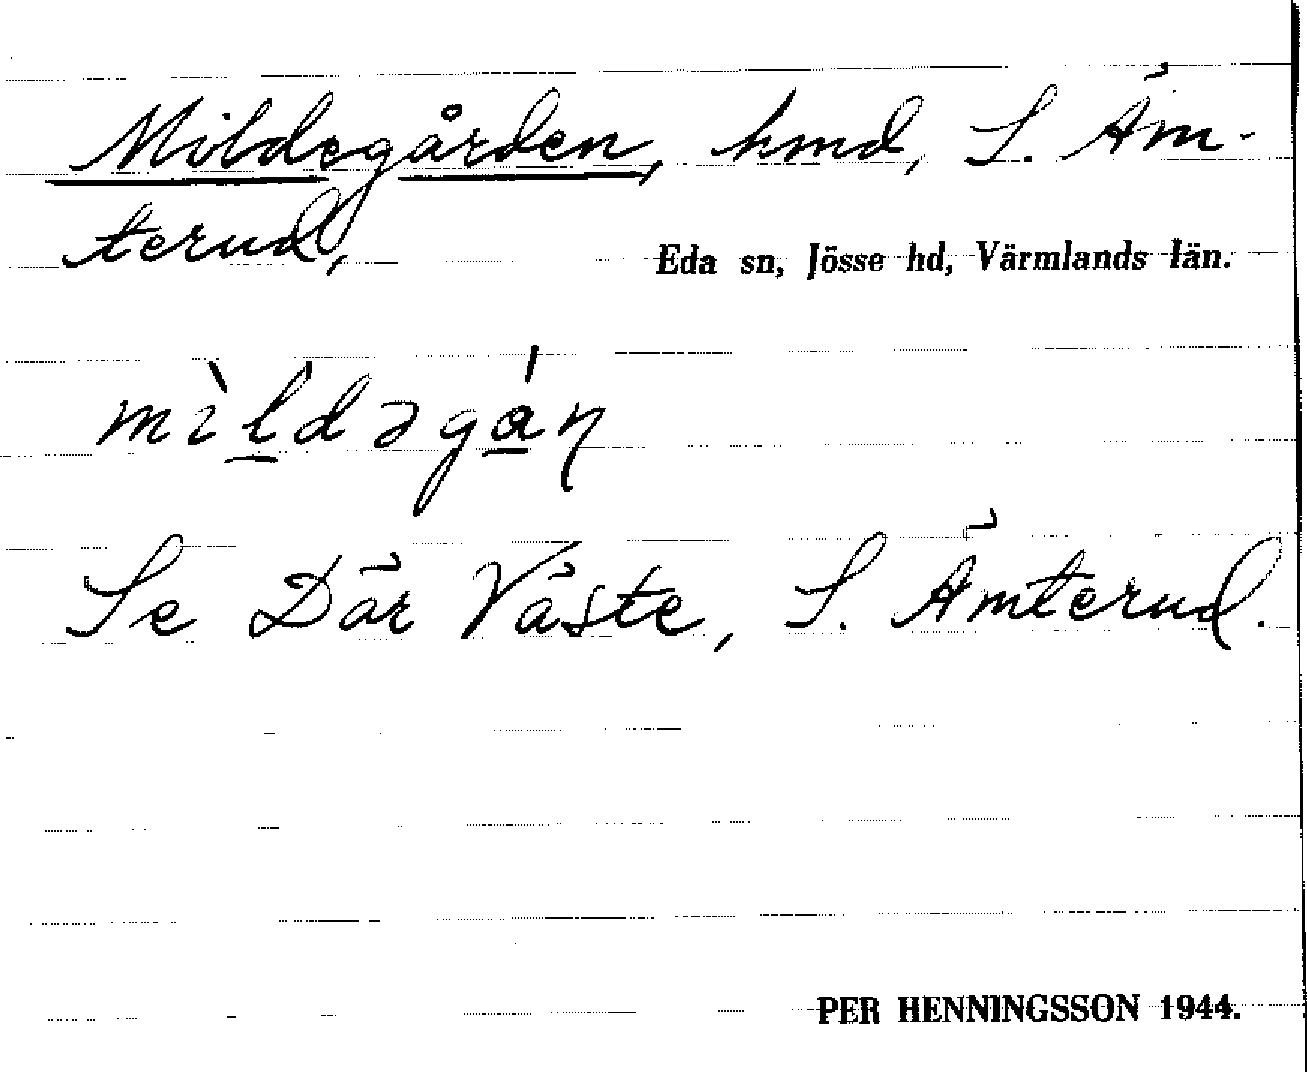 Mildegården, hmd, S. Äm-
terud,
Eda sn, Jösse hd, Värmlands län.
mìldəgáɳ
Se Där Väste, S. Ämterud.
PER HENNINGSSON 1944.